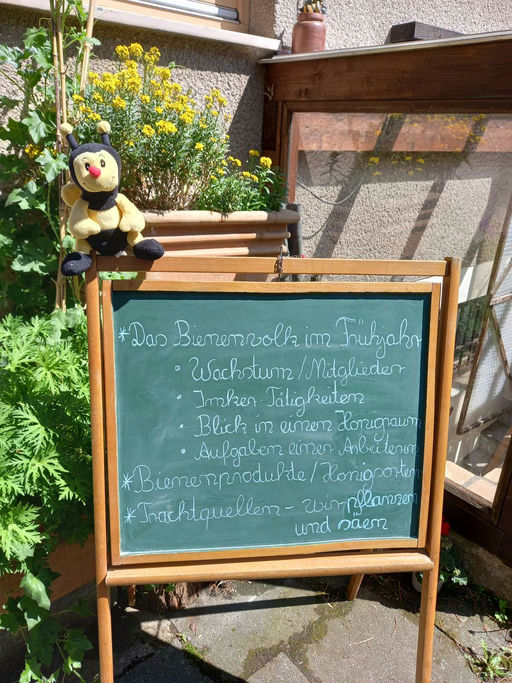 *Das Bienenvolk im Frühjahr
• Wachstum/Mitglieder
• Imker-Tätigkeiten
• Blick in einen Honigraum
• Aufgaben einer Arbeiterin
*Bienenprodukte/Honigsorten
*Trachtquellen - wir pflanzen
und säen